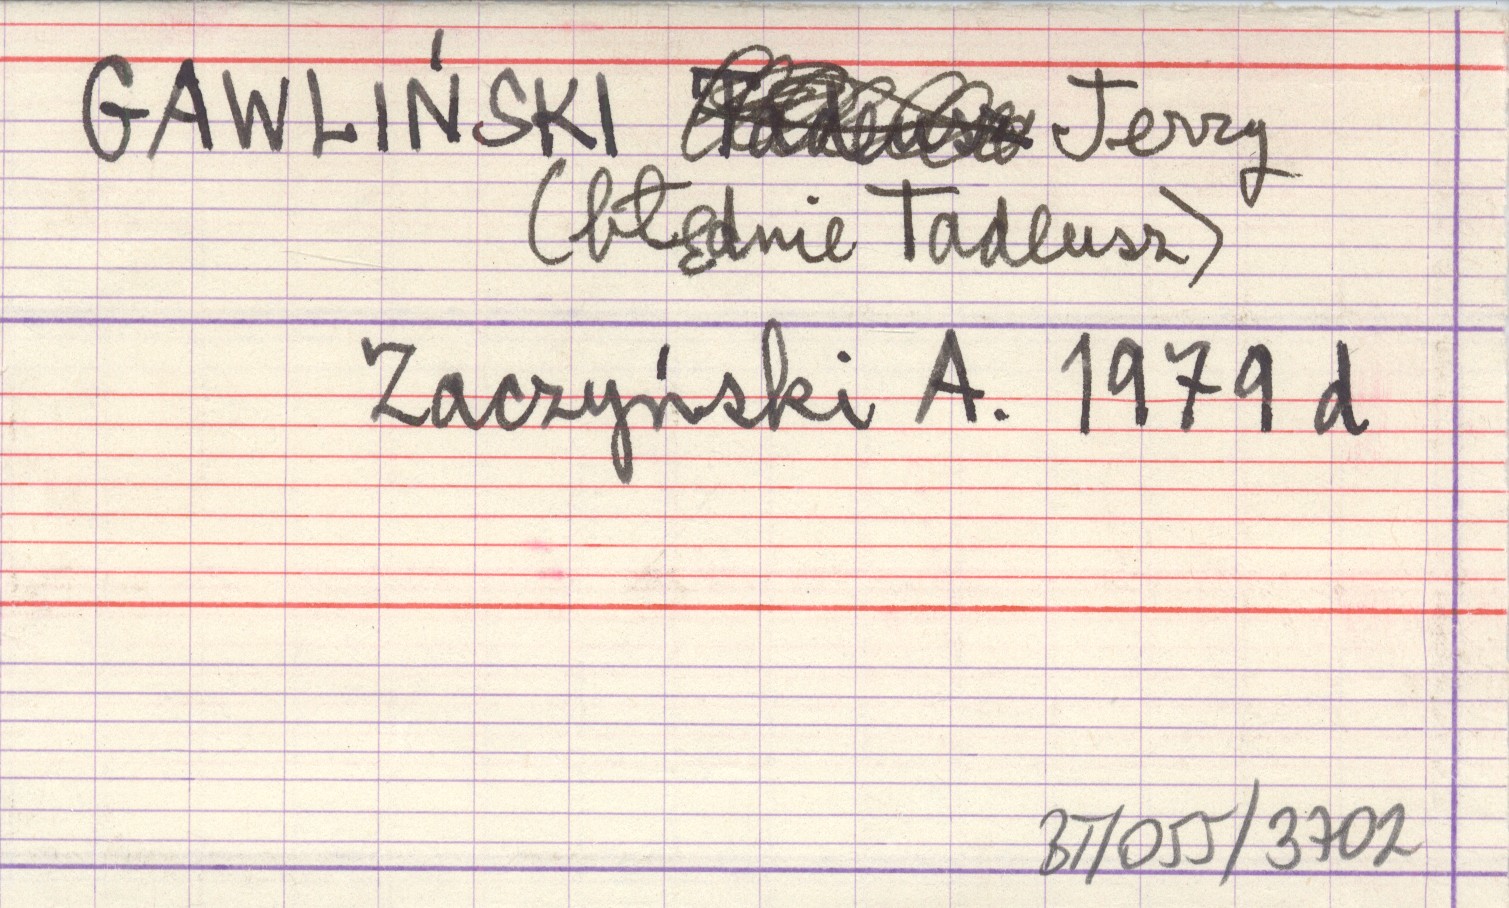 GAWLIŃSKI Tadeusz Jerzy
(błędnie Tadeusz)
Zaczyński A. 1979 d
BT/055/3702